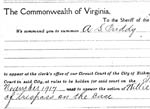 The Commonwealth of Virginia.
To the Sheriff of the
We command you to summon A. S. Priddy
to appear at the clerk's office of our Circuit Court of the City of
Court in said City, at rules to be holden for said court on the
November 1917 next to answer the action of Willie
of trespass on the case